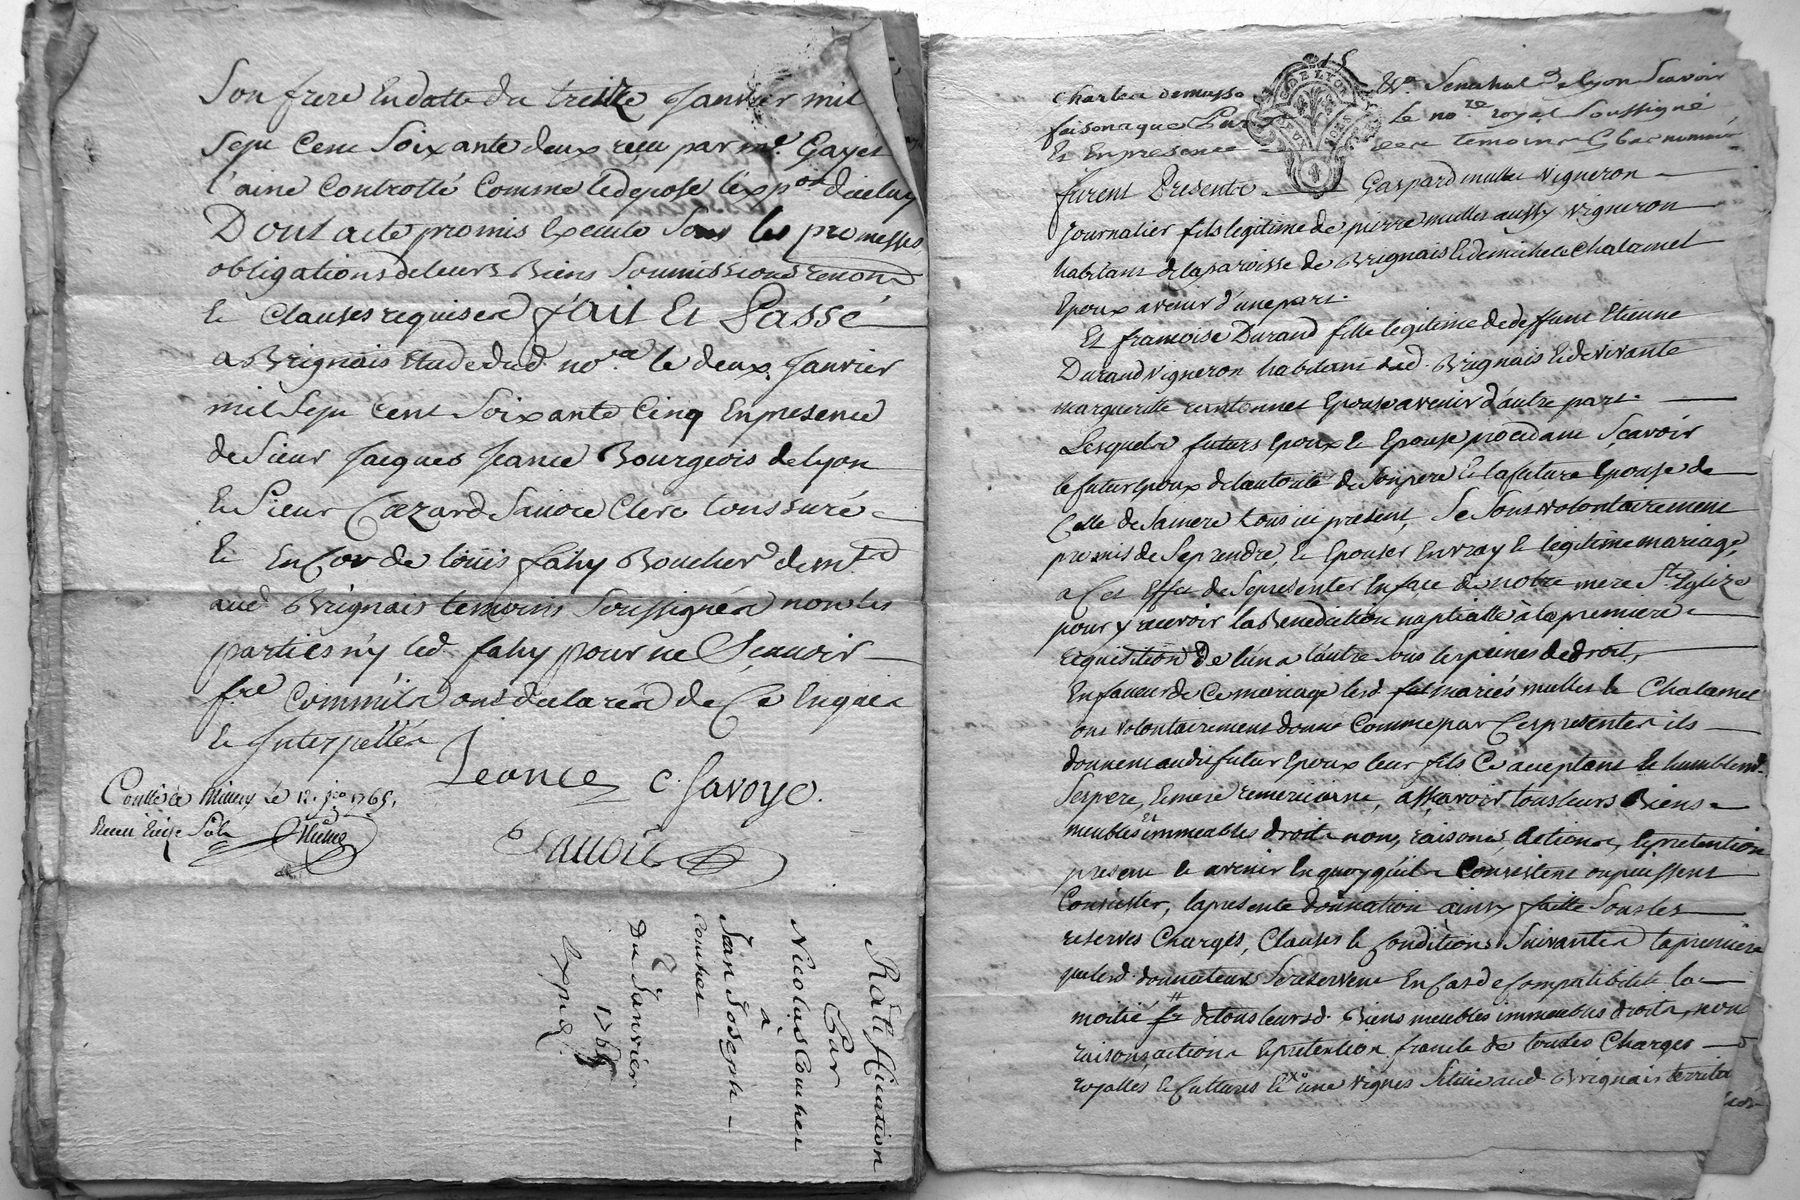 Son frere En datte du treitze Janvier mil
Sept Cent Soixante deux reçu par me. Gayet
l'ainé Controllé Comme Il depose l'exp.on d'iceluy
Dont acte promis Executé Sous les promesses
obligations de leurs Biens Soumissions renon
Et Clauses requises fait Et Passé
a Brignais Etude dud. no.re le deux Janvier
mil Sept Cent Soixante Cinq En presence
de Sieur Jacques Jeance Bourgeois de Lyon
Et Sieur Savoie Clerc tonssuré
Et Encor de loüis fahy Boucher demt.
aud. Brignais temoins Soussignés non les
parties ny led. fahy pour ne Sçavoir
fre. Comm'ils ont declaré de Ce Enquis
Et Interpellés
Jeance C Savoye.
Savoie
Coullé a Millery Le 12. 1765,
Reçu
Ratiffication
Par
Nicolas Couher
à
Jean Joseph
Couher
Du 2 Janvier
1765
Exped.
G. DE LYON
Charles demasso Senechal de Lyon Scavoir
faisons que Par Le no.re royal Soussigné
Et En presence des temoins cy bas nommés
furent Presents Gaspard mulles vigneron
Journalier fils legitime de pierre mulles aussy vigneron
habitans de la paroisse de Brignais Et de michele Chalamel
Epoux avenir d'une part.
Et francoise Durand fille legitime de deffunt Etienne
Durand vigneron habitant dud. Brignais Et de vivante
margueritte Epouse avenir d'autre part.
Lesquels futurs Epoux Et Epouse procedant Sçavoir
le futur Epoux de l'autorité de Son pere Et la future Epouse de
Celle de Sa mere tous ici present, Se Sont volontairement
promis de Se prendre, Et Epouser En vray Et legitime mariage,
a Cet Effet de Se presenter En face de notre mere Ste. Eglize
pour y recevoir la Benediction nuptialle à la premiere
requisition de l'un a l'autre Sous les peines de droit,
En faveur de Ce mariage lesd. mariés mulles Et Chalamel
ont volontairement donné Comme par Ces presentes ils
donnent audit futur Epoux leur fils Ce acceptant Et humblemt.
Ses pere, Et mere remerciant, assavoir tous leurs Biens
meubles et immeubles droits noms, raisons, Actions, Et pretention
present Et avenir En quoy qu'ils Consistent ou puissent
Consister, la presente donnation ainsy faitte Sous les
reserves Charges, Clauses Et Conditions Suivantes la premiere
que lesd. donnateurs Se reservent En Cas d'incompatibilité la
moitié de tous leursd. Biens meubles immeubles droits, noms
raisons actions Et pretention franche de toutes Charges
royalles Et Cultures Et une vignes Scituée aud. Brignais territoi